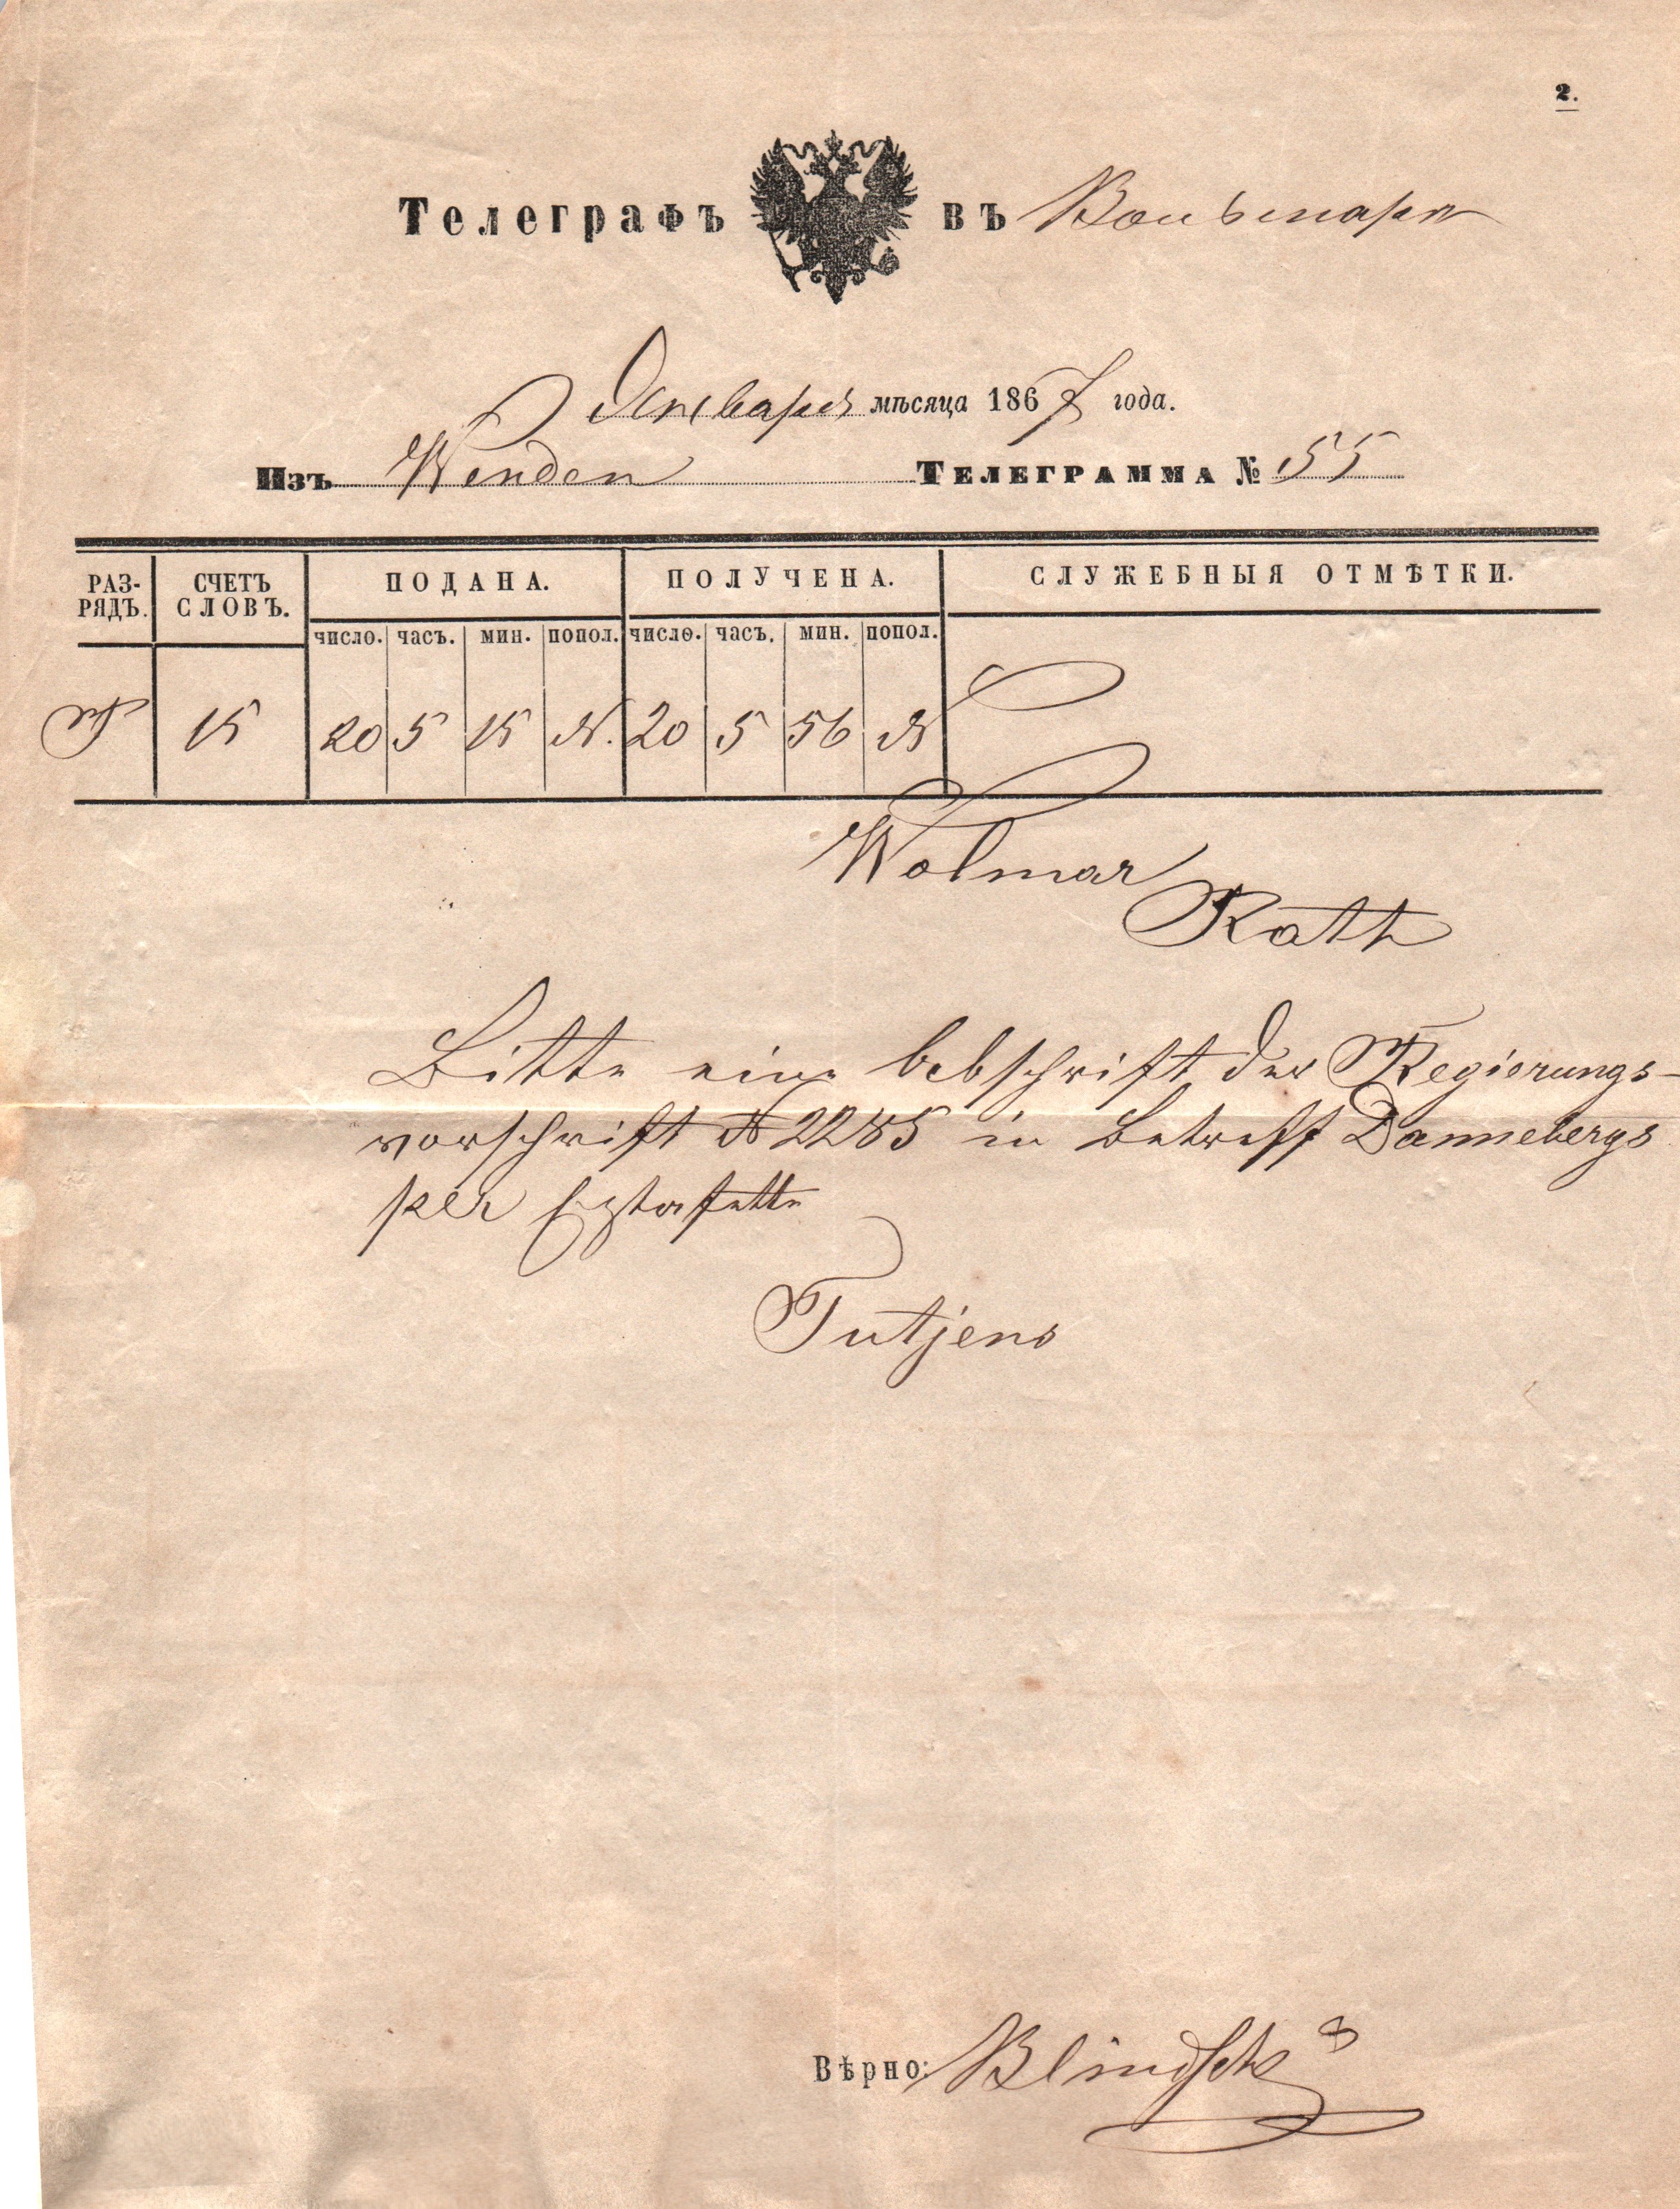 2.
Телеграфъ въ Вольмарѣ
Января мѣсяца 1867 года.
Изъ Wenden Телеграмма № 55
РАЗ-РЯДЪ. СЧЕТЪ СЛОВЪ. ПОДАНА. ПОЛУЧЕНА. СЛУЖЕБНЫЯ ОТМѢТКИ.
число. часъ. мин. попол. число. часъ. мин. попол.
15 20 5 15 N. 20 5 56 N
Wolmar
Rath
Bitte eine Abschrift der Regierungs-
vorschrift № 2285 in Betreff Dannebergs
per Estafette
Tutjens
Вѣрно: